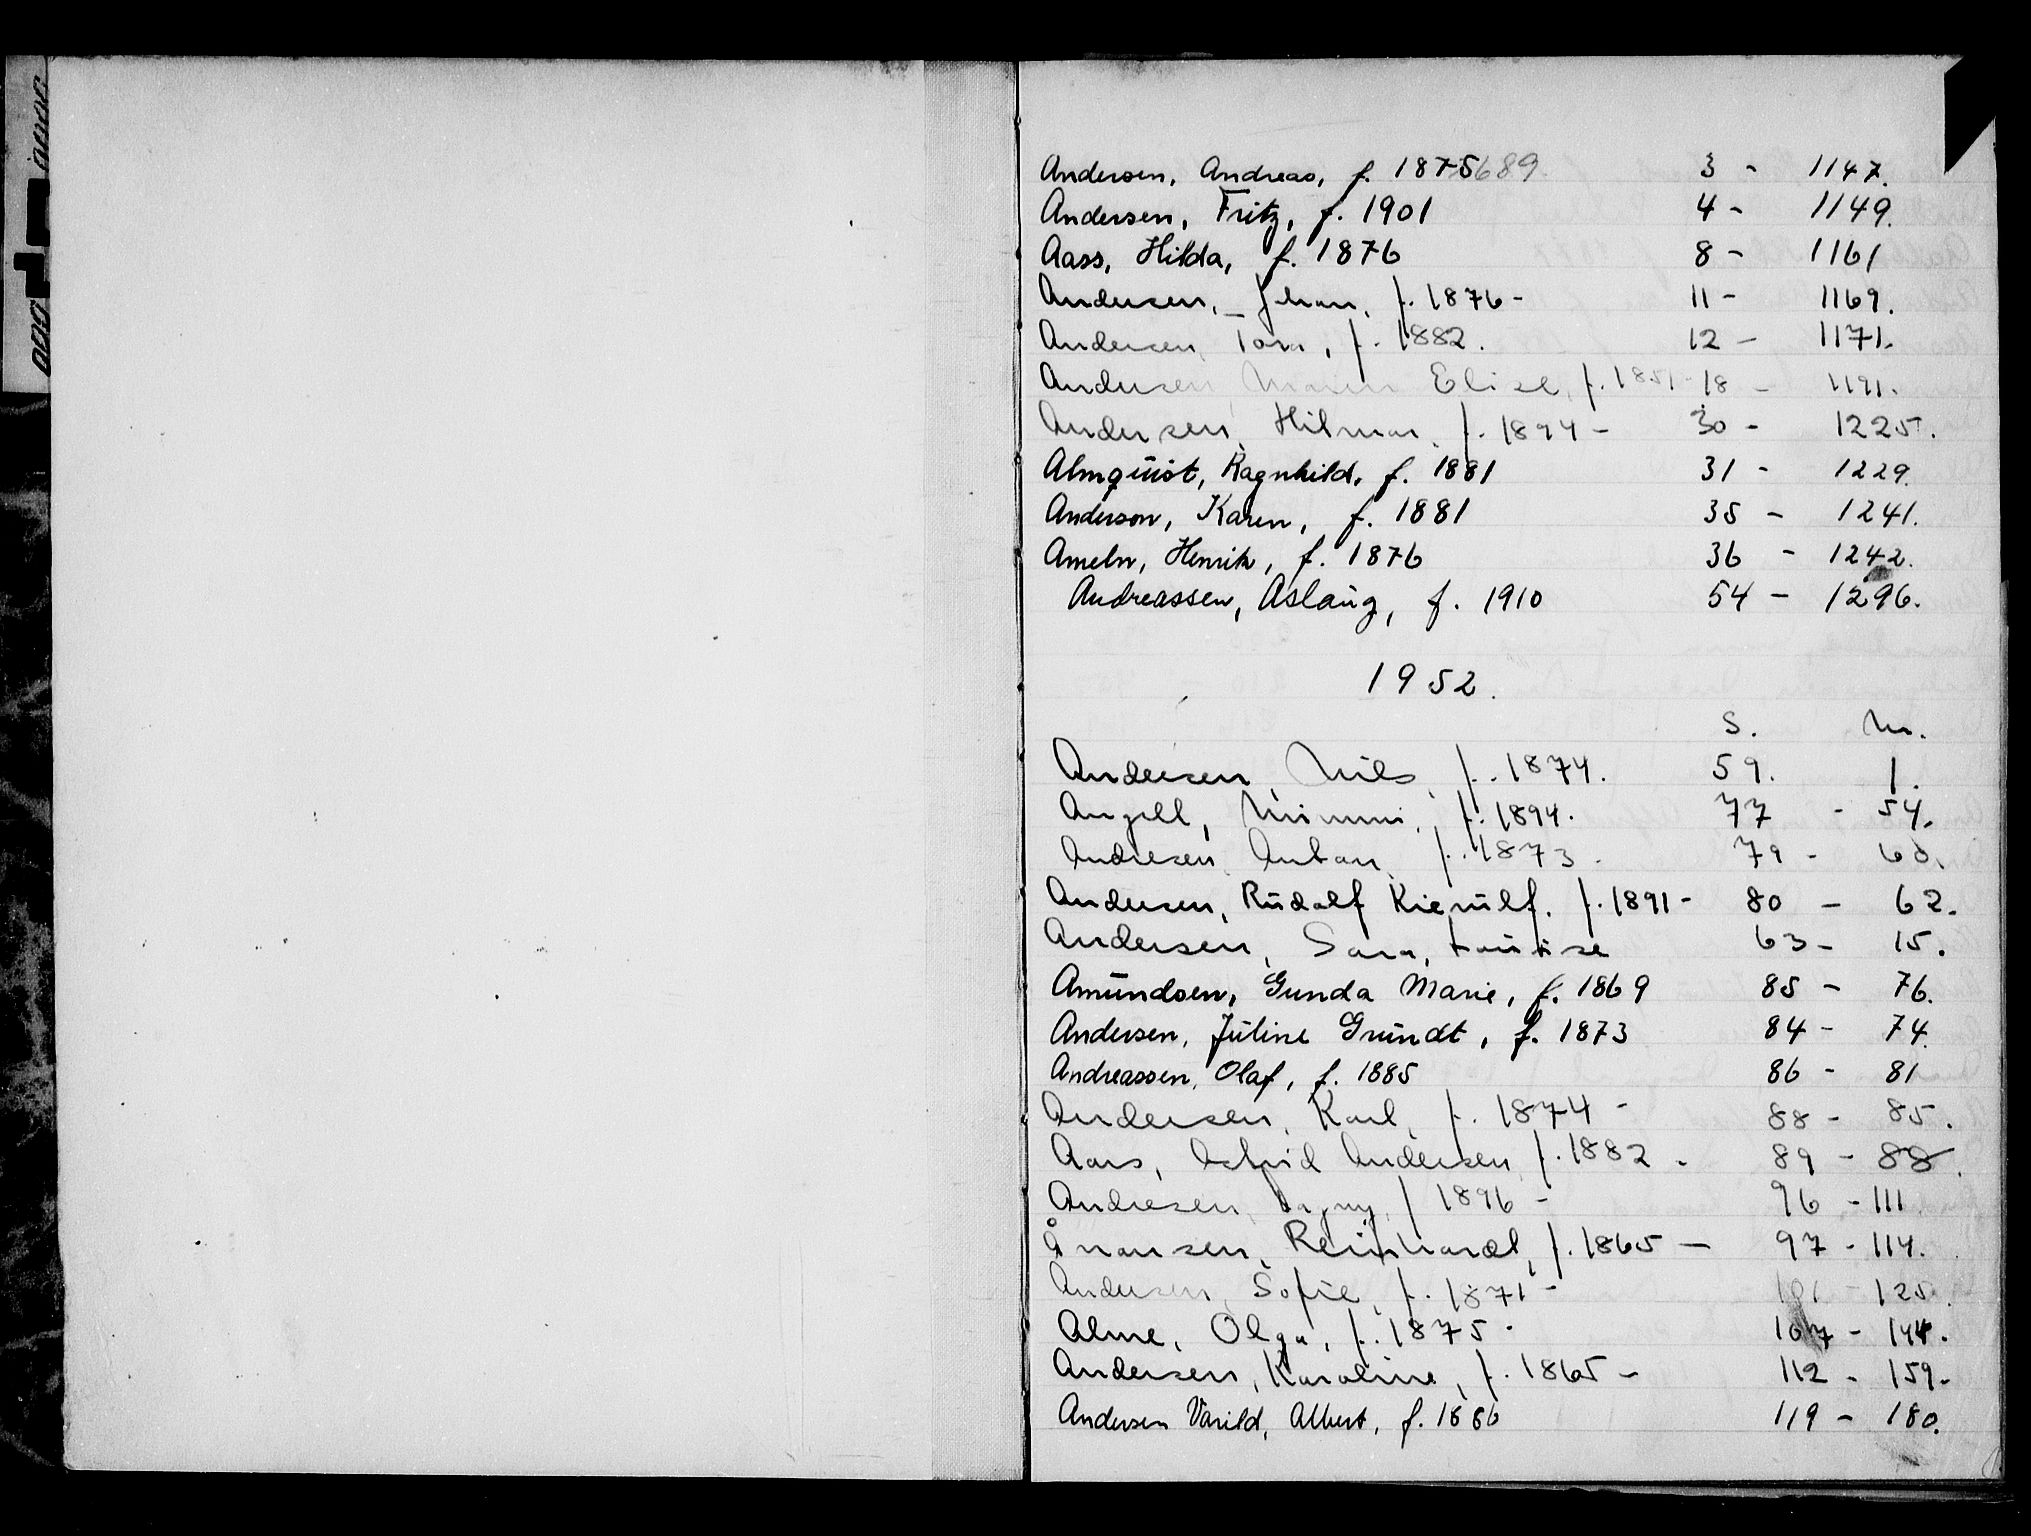 Andersen, Andreas, f. 1875 689. 3 - 1147.
Andersen, Fritz, f. 1901 4 - 1149.
Aass, Hilda, f. 1876 8 - 1161
Andersen, Johan, f. 1876 - 11 - 1169.
Andersen, Tora, f. 1882. 12 - 1171.
Andersen, Maren Elise, f. 1851 - 18 - 1191.
Andersen, Hilmar, f. 1894 - 30 - 1225.
Almquist, Ragnhild, f. 1881 31 - 1229.
Anderson, Karen, f. 1881 35 - 1241.
Ameln, Henrik, f. 1876 36 - 1242.
Andreassen, Aslaug, f. 1910 54 - 1296.
1952.
S. Nr.
Andersen, Nils, f. 1874. 59. 1.
Angell, Mimmi, f. 1894. 77 - 54.
Andresen, Anton, f. 1873. 79 - 60.
Andersen, Rudolf Kierulf, f. 1891 - 80 - 62.
Andersen, Sara, Louise 63 - 15.
Amundsen, Gunda Marie, f. 1869 85 - 76.
Andersen, Juline Grundt, f. 1873 84 - 74.
Andreassen, Olaf, f. 1885 86 - 81
Andersen, Karl, f. 1874 - 88 - 85.
Aars, Astrid Andersen, f. 1882. 89 - 88.
Andresen, Dagny, f 1896 - 96 - 111.
Ånonsen, Reinhardt, f. 1865 - 97 - 114.
Andersen, Sofie, f. 1871 - 101 - 125.
Alme, Olga, f. 1875. 107 - 144.
Andersen, Karoline, f. 1865 - 112 - 159.
Andersen Varild, Albert, f. 1886 119 - 180.